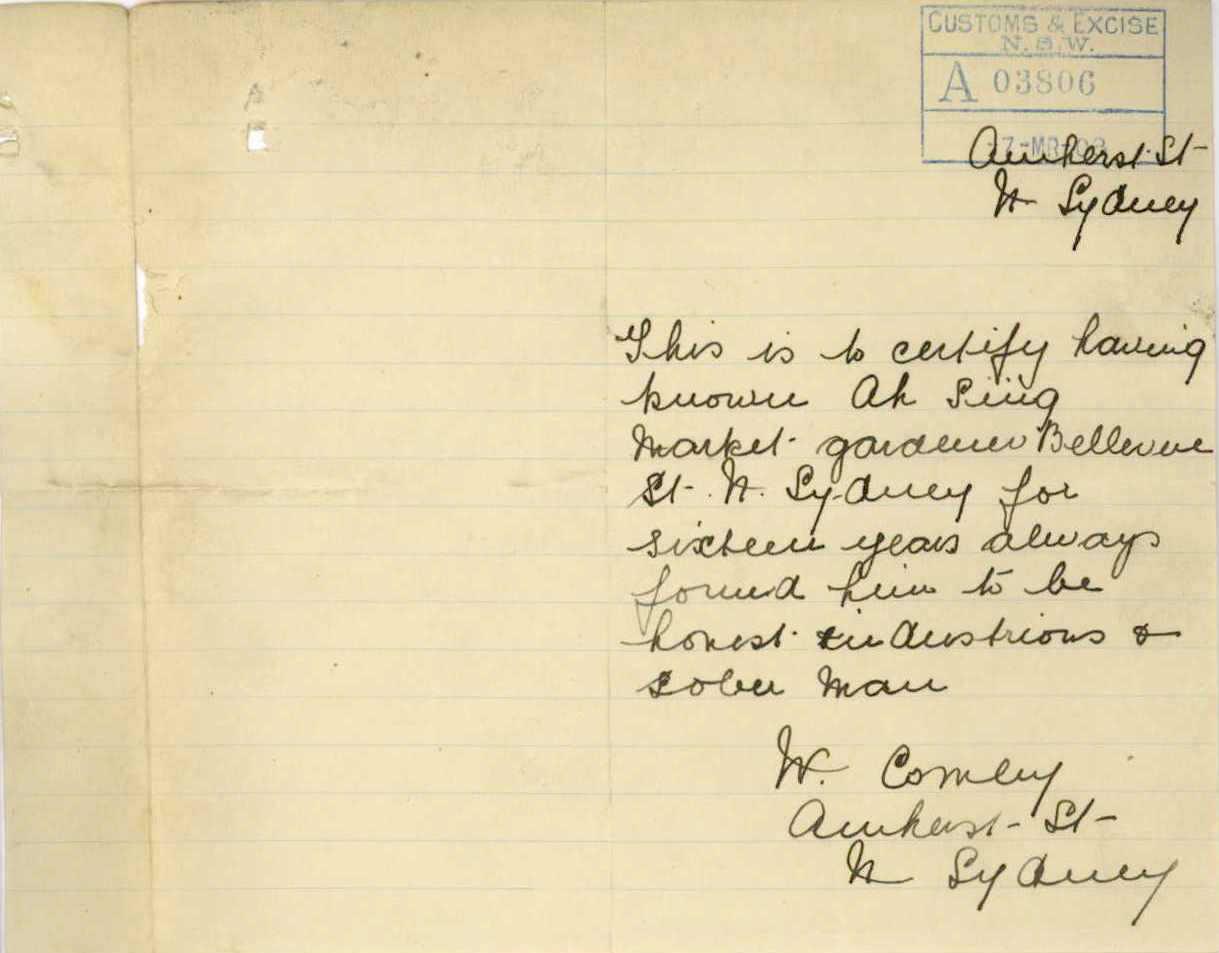 CUSTOMS & EXCISE
N.S.W.
A 03806
7-MR-03
Amherst St
N Sydney
This is to certify having
known Ah Sing
Market gardener Bellevue
St. N. Sydney for
sixteen years always
found him to be
honest industrious &
sober man
W. Comley
Amherst St
N Sydney